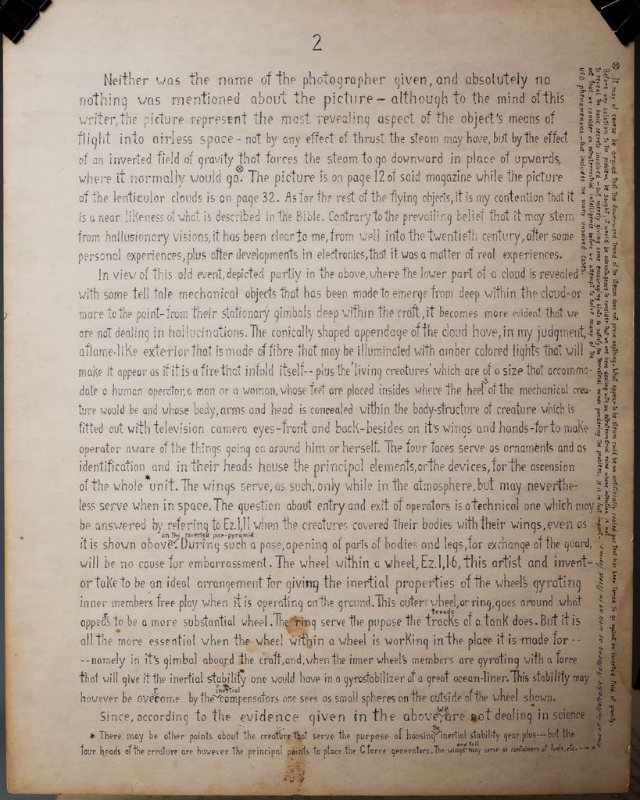 2
Neither was the name of the photographer given, and absolutely no
nothing was mentioned about the picture – although to the mind of this
writer, the picture represent the most revealing aspect of the object's means of
flight into airless space – not by any effect of thrust the steam may have, but by the effect
of an inverted field of gravity that forces the steam to go downward in place of upwards,
where it normally would go.⊗ The picture is on page 12 of said magazine while the picture
of the lenticular clouds is on page 32. As for the rest of the flying objects, it is my contention that it
is a near likeness of what is described in the Bible. Contrary to the prevailing belief that it may stem
from hallusionary visions, it has been clear to me, from well into the twentieth century, after some
personal experiences, plus after developments in electronics, that it was a matter of real experiences.
In view of this old event, depicted partly in the above, where the lower part of a cloud is revealed
with some tell tale mechanical objects that has been made to emerge from deep within the cloud – or
more to the point – from their stationary gimbals deep within the craft, it becomes more evident that we
are not dealing in hallucinations. The conically shaped appendage of the cloud have, in my judgment,
a flame-like exterior that is made of fibre that may be illuminated with amber colored lights that will
make it appear as if it is a fire that infold itself -- plus the 'living creatures' which are of a size that accommo-
date a human operator, a man or a woman, whose feet are placed insides where the heels of the mechanical crea-
ture would be and whose body, arms and head is concealed within the body-structure of creature which is
fitted out with television camera eyes – front and back – besides on it's wings and hands – for to make
operator aware of the things going on around him or herself. The four faces serve as ornaments and as
identification and in their heads house the principal elements, or the devices, for the ascension
of the whole *unit. The wings serve, as such, only while in the atmosphere, but may neverthe-
less serve when in space. The question about entry and exit of operators is a technical one which may
be answered by refering to Ez.1,11 when the creatures covered their bodies with their wings, even as
it is shown above on the inverted pice-pyramid. During such a pose, opening of parts of bodies and legs, for exchange of the guard,
will be no cause for embarrassment. The wheel within a wheel, Ez.1,16, this artist and invent-
or take to be an ideal arrangement for giving the inertial properties of the wheel's gyrating
inner members free play when it is operating on the ground. This outer wheel, or ring, goes around what
appears to be a more substantial wheel. The ring serve the pupose the treads tracks of a tank does. But it is
all the more essential when the wheel within a wheel is working in the place it is made for --
-- namely in it's gimbal aboard the craft, and, when the inner wheel's members are gyrating with a force
that will give it the inertial stability one would have in a gyrostabilizer of a great ocean-liner. This stability may
however be overcome by the inertial compensators one sees as small spheres on the outside of the wheel shown.
Since, according to the evidence given in the above, we are not dealing in science
* There may be other points about the creature that serve the purpose of housing the inertial stability gear plus --- but the
four heads of the creature are however the principal points to place the G force generators. The wings and tail may serve as containers of fuels, etc.
⊗ It may of course be argued that the downward trend of the steam does not prove anything. What appears to be steam could be an artificially cooled gas that been forced to go against an inverted field of gravity.
Before any solution to the problem be sought, it would be advantageous to consider that we are here dealing with an extraterrestrial mind whose intention is not
to reveal the basic secrets involved – but merely giving some encouraging points to satisfy the terrestrial minds pondering the problem. It is in that respect
not that we consider an extraterrestrial intelligence before we attempt to solve many of the
UFO phenomenons – that includes the many involved cases.